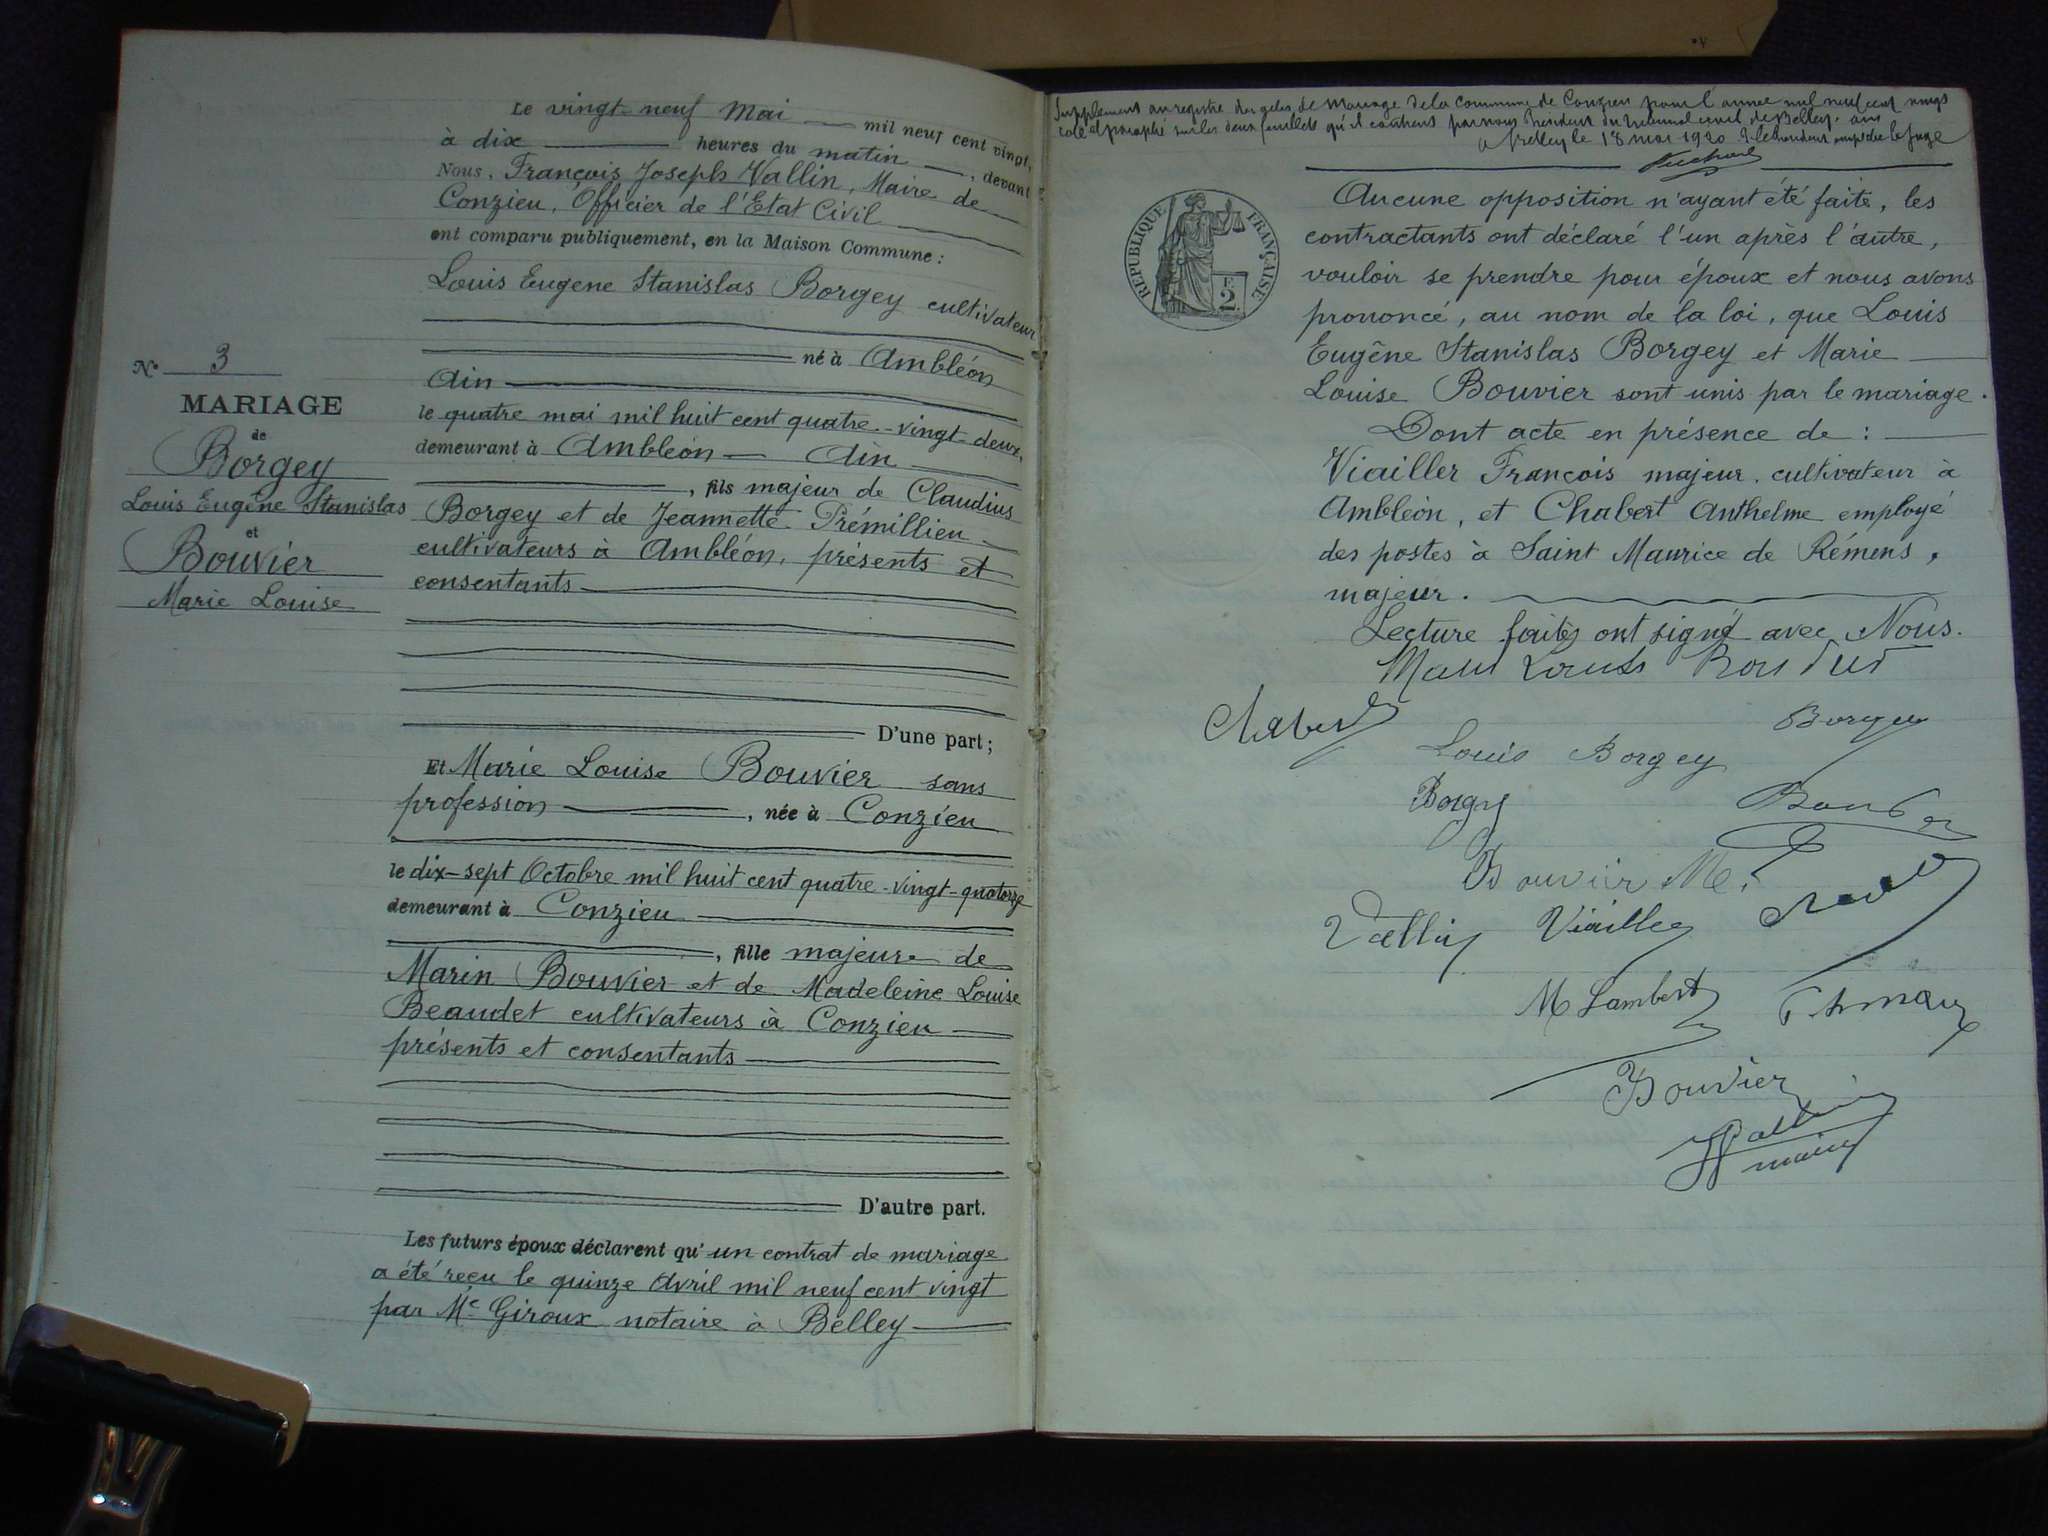 Le vingt-neuf Mai mil neuf cent vingt,
à dix heures du matin, devant
Nous, François Joseph Vallin, Maire de
Conzieu, Officier de l'Etat Civil
ont comparu publiquement, en la Maison Commune :
Louis Eugene Stanislas Borgey cultivateur
né à Ambléon
Ain
le quatre mai mil huit cent quatre-vingt-deux,
demeurant à Ambléon Ain
, fils majeur de Claudius
Borgey et de Jeannette Prémillieu
cultivateurs à Ambléon, présents et
consentants
D'une part ;
Et Marie Louise Bouvier sans
profession, née à Conzieu
le dix-sept Octobre mil huit cent quatre-vingt-quatorze
demeurant à Conzieu
, fille majeure de
Marin Bouvier et de Madeleine Louise
Beaudet cultivateurs à Conzieu
présents et consentants
D'autre part.
Les futurs époux déclarent qu'un contrat de mariage
a été reçu le quinze Avril mil neuf cent vingt
par Me Giroux notaire à Belley
No 3
MARIAGE
de
Borgey
Louis Eugène Stanislas
et
Bouvier
Marie Louise
Supplément au registre des actes de Mariage de la Commune de Conzieu pour l'année mil neuf cent vingt
coté et paraphé sur les deux feuillets qu'il contient par nous Président du Tribunal civil de Belley, Ain
Belley le 18 mai 1920
REPUBLIQUE FRANÇAISE
2F
Aucune opposition n'ayant été faite, les
contractants ont déclaré l'un après l'autre,
vouloir se prendre pour époux et nous avons
prononcé, au nom de la loi, que Louis
Eugêne Stanislas Borgey et Marie
Louise Bouvier sont unis par le mariage.
Dont acte en présence de :
Viailler François majeur, cultivateur à
Ambléon, et Chabert Anthelme employé
des postes à Saint Maurice de Rémens,
majeur.
Lecture faite, ont signé avec Nous.
Marie Louise Bouvier
Chabert
Borgey
Louis Borgey
Borgey
Bouvier M.
Vallin Viailler
M Lambert
Bouvier
Vallin
maire